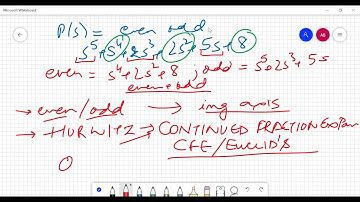 Microsoft Whiteboard
P(s) = even odd
s⁵+s⁴+2s³+2s²+5s+8
even = s⁴+2s²+8 ; odd = s⁵+2s³+5s
even+odd
→ even/odd → img axis
→ HURWITZ → CONTINUED FRACTION
CFE/EUCLID'S